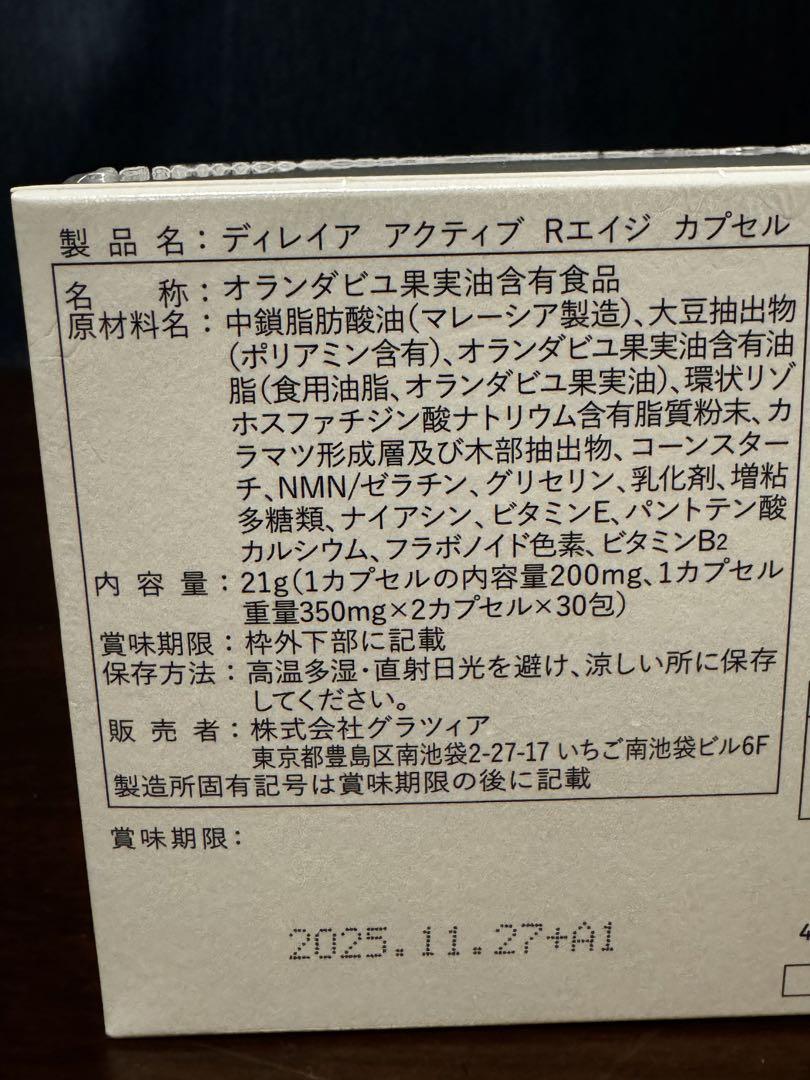 製品名：ディレイア アクティブ Rエイジ カプセル
名称：オランダビユ果実油含有食品
原材料名：中鎖脂肪酸油(マレーシア製造)、大豆抽出物
(ポリアミン含有)、オランダビユ果実油含有油
脂(食用油脂、オランダビユ果実油)、環状リゾ
ホスファチジン酸ナトリウム含有脂質粉末、カ
ラマツ形成層及び木部抽出物、コーンスター
チ、NMN/ゼラチン、グリセリン、乳化剤、増粘
多糖類、ナイアシン、ビタミンE、パントテン酸
カルシウム、フラボノイド色素、ビタミンB2
内容量：21g(1カプセルの内容量200mg、1カプセル
重量350mg×2カプセル×30包)
賞味期限：枠外下部に記載
保存方法：高温多湿・直射日光を避け、涼しい所に保存
してください。
販売者：株式会社グラツィア
東京都豊島区南池袋2-27-17 いちご南池袋ビル6F
製造所固有記号は賞味期限の後に記載
賞味期限：
2025.11.27+A1
4